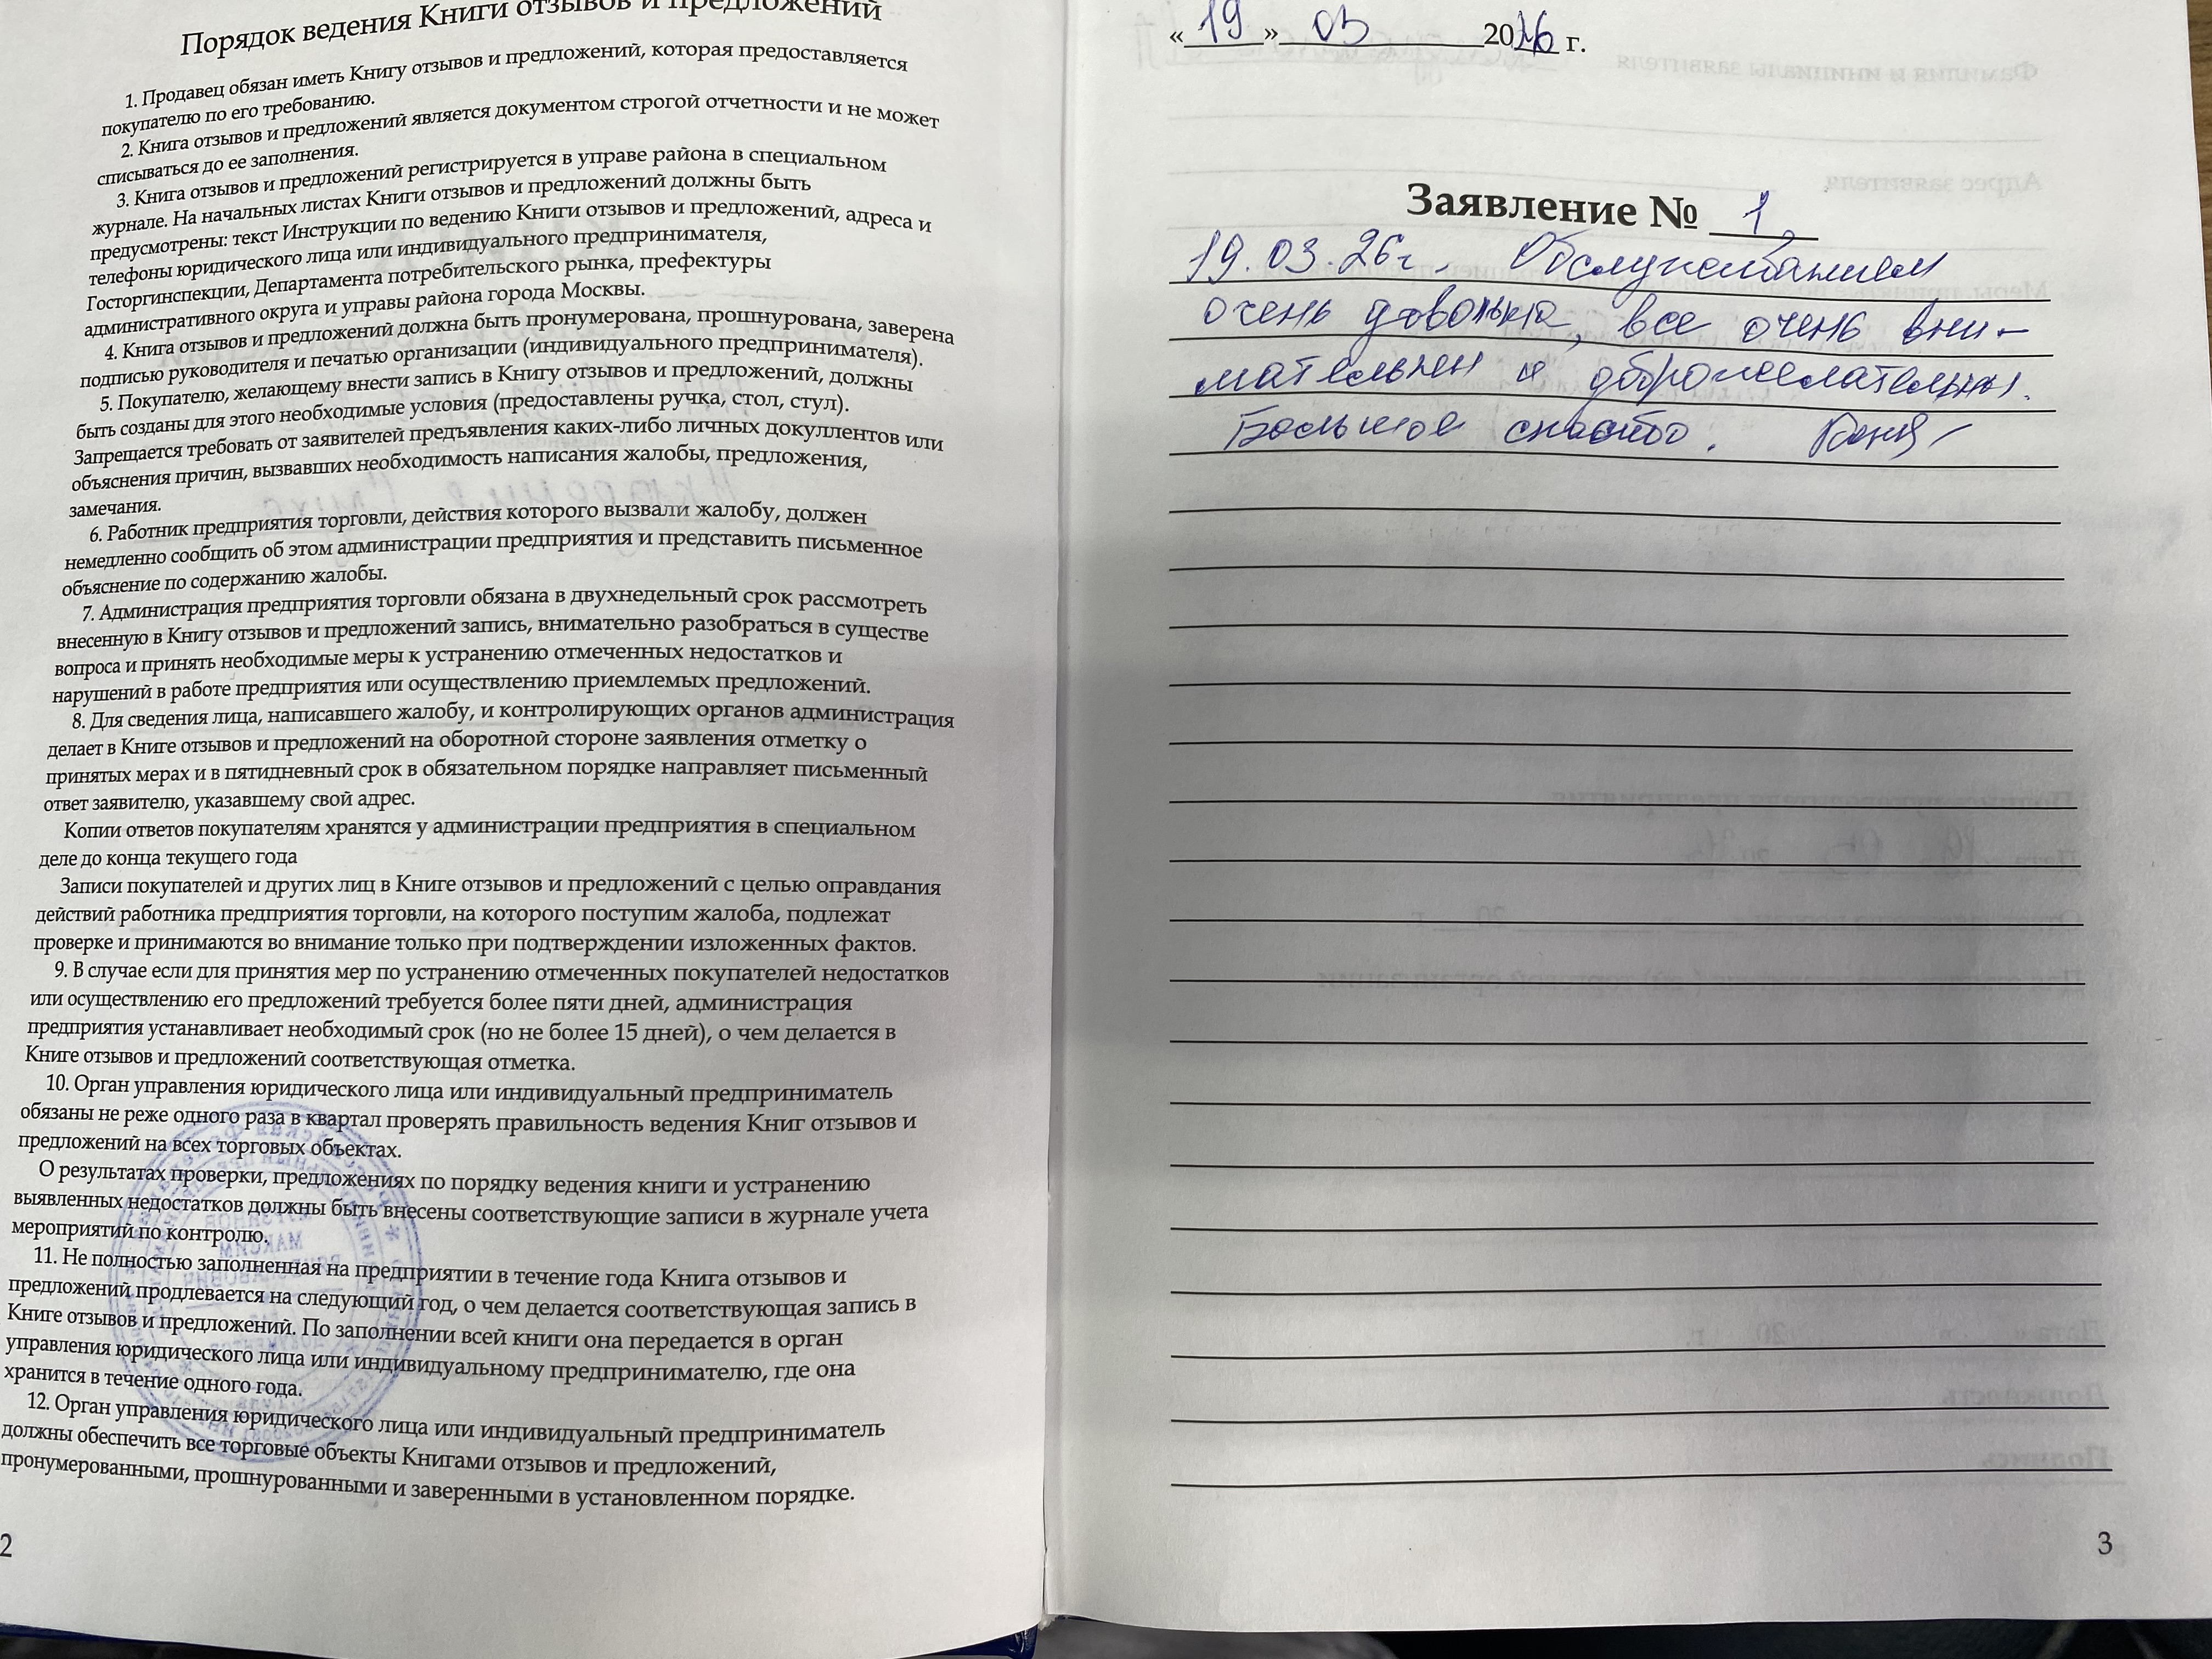 Порядок ведения Книги отзывов и предложений
1. Продавец обязан иметь Книгу отзывов и предложений, которая предоставляется
покупателю по его требованию.
2. Книга отзывов и предложений является документом строгой отчетности и не может
списываться до ее заполнения.
3. Книга отзывов и предложений регистрируется в управе района в специальном
журнале. На начальных листах Книги отзывов и предложений должны быть
предусмотрены: текст Инструкции по ведению Книги отзывов и предложений, адреса и
телефоны юридического лица или индивидуального предпринимателя,
Госторгинспекции, Департамента потребительского рынка, префектуры
административного округа и управы района города Москвы.
4. Книга отзывов и предложений должна быть пронумерована, прошнурована, заверена
подписью руководителя и печатью организации (индивидуального предпринимателя).
5. Покупателю, желающему внести запись в Книгу отзывов и предложений, должны
быть созданы для этого необходимые условия (предоставлены ручка, стол, стул).
Запрещается требовать от заявителей предъявления каких-либо личных докуллентов или
объяснения причин, вызвавших необходимость написания жалобы, предложения,
замечания.
6. Работник предприятия торговли, действия которого вызвали жалобу, должен
немедленно сообщить об этом администрации предприятия и представить письменное
объяснение по содержанию жалобы.
7. Администрация предприятия торговли обязана в двухнедельный срок рассмотреть
внесенную в Книгу отзывов и предложений запись, внимательно разобраться в существе
вопроса и принять необходимые меры к устранению отмеченных недостатков и
нарушений в работе предприятия или осуществлению приемлемых предложений.
8. Для сведения лица, написавшего жалобу, и контролирующих органов администрация
делает в Книге отзывов и предложений на оборотной стороне заявления отметку о
принятых мерах и в пятидневный срок в обязательном порядке направляет письменный
ответ заявителю, указавшему свой адрес.
Копии ответов покупателям хранятся у администрации предприятия в специальном
деле до конца текущего года
Записи покупателей и других лиц в Книге отзывов и предложений с целью оправдания
действий работника предприятия торговли, на которого поступим жалоба, подлежат
проверке и принимаются во внимание только при подтверждении изложенных фактов.
9. В случае если для принятия мер по устранению отмеченных покупателей недостатков
или осуществлению его предложений требуется более пяти дней, администрация
предприятия устанавливает необходимый срок (но не более 15 дней), о чем делается в
Книге отзывов и предложений соответствующая отметка.
10. Орган управления юридического лица или индивидуальный предприниматель
обязаны не реже одного раза в квартал проверять правильность ведения Книг отзывов и
предложений на всех торговых объектах.
О результатах проверки, предложениях по порядку ведения книги и устранению
выявленных недостатков должны быть внесены соответствующие записи в журнале учета
мероприятий по контролю.
11. Не полностью заполненная на предприятии в течение года Книга отзывов и
предложений продлевается на следующий год, о чем делается соответствующая запись в
Книге отзывов и предложений. По заполнении всей книги она передается в орган
управления юридического лица или индивидуальному предпринимателю, где она
хранится в течение одного года.
12. Орган управления юридического лица или индивидуальный предприниматель
должны обеспечить все торговые объекты Книгами отзывов и предложений,
пронумерованными, прошнурованными и заверенными в установленном порядке.
2
«19» 03 2026 г.
Заявление № 1
19.03.26г. Обслуживанием
очень довольна, все очень вни-
мательны и доброжелательны.
Большое спасибо.
3